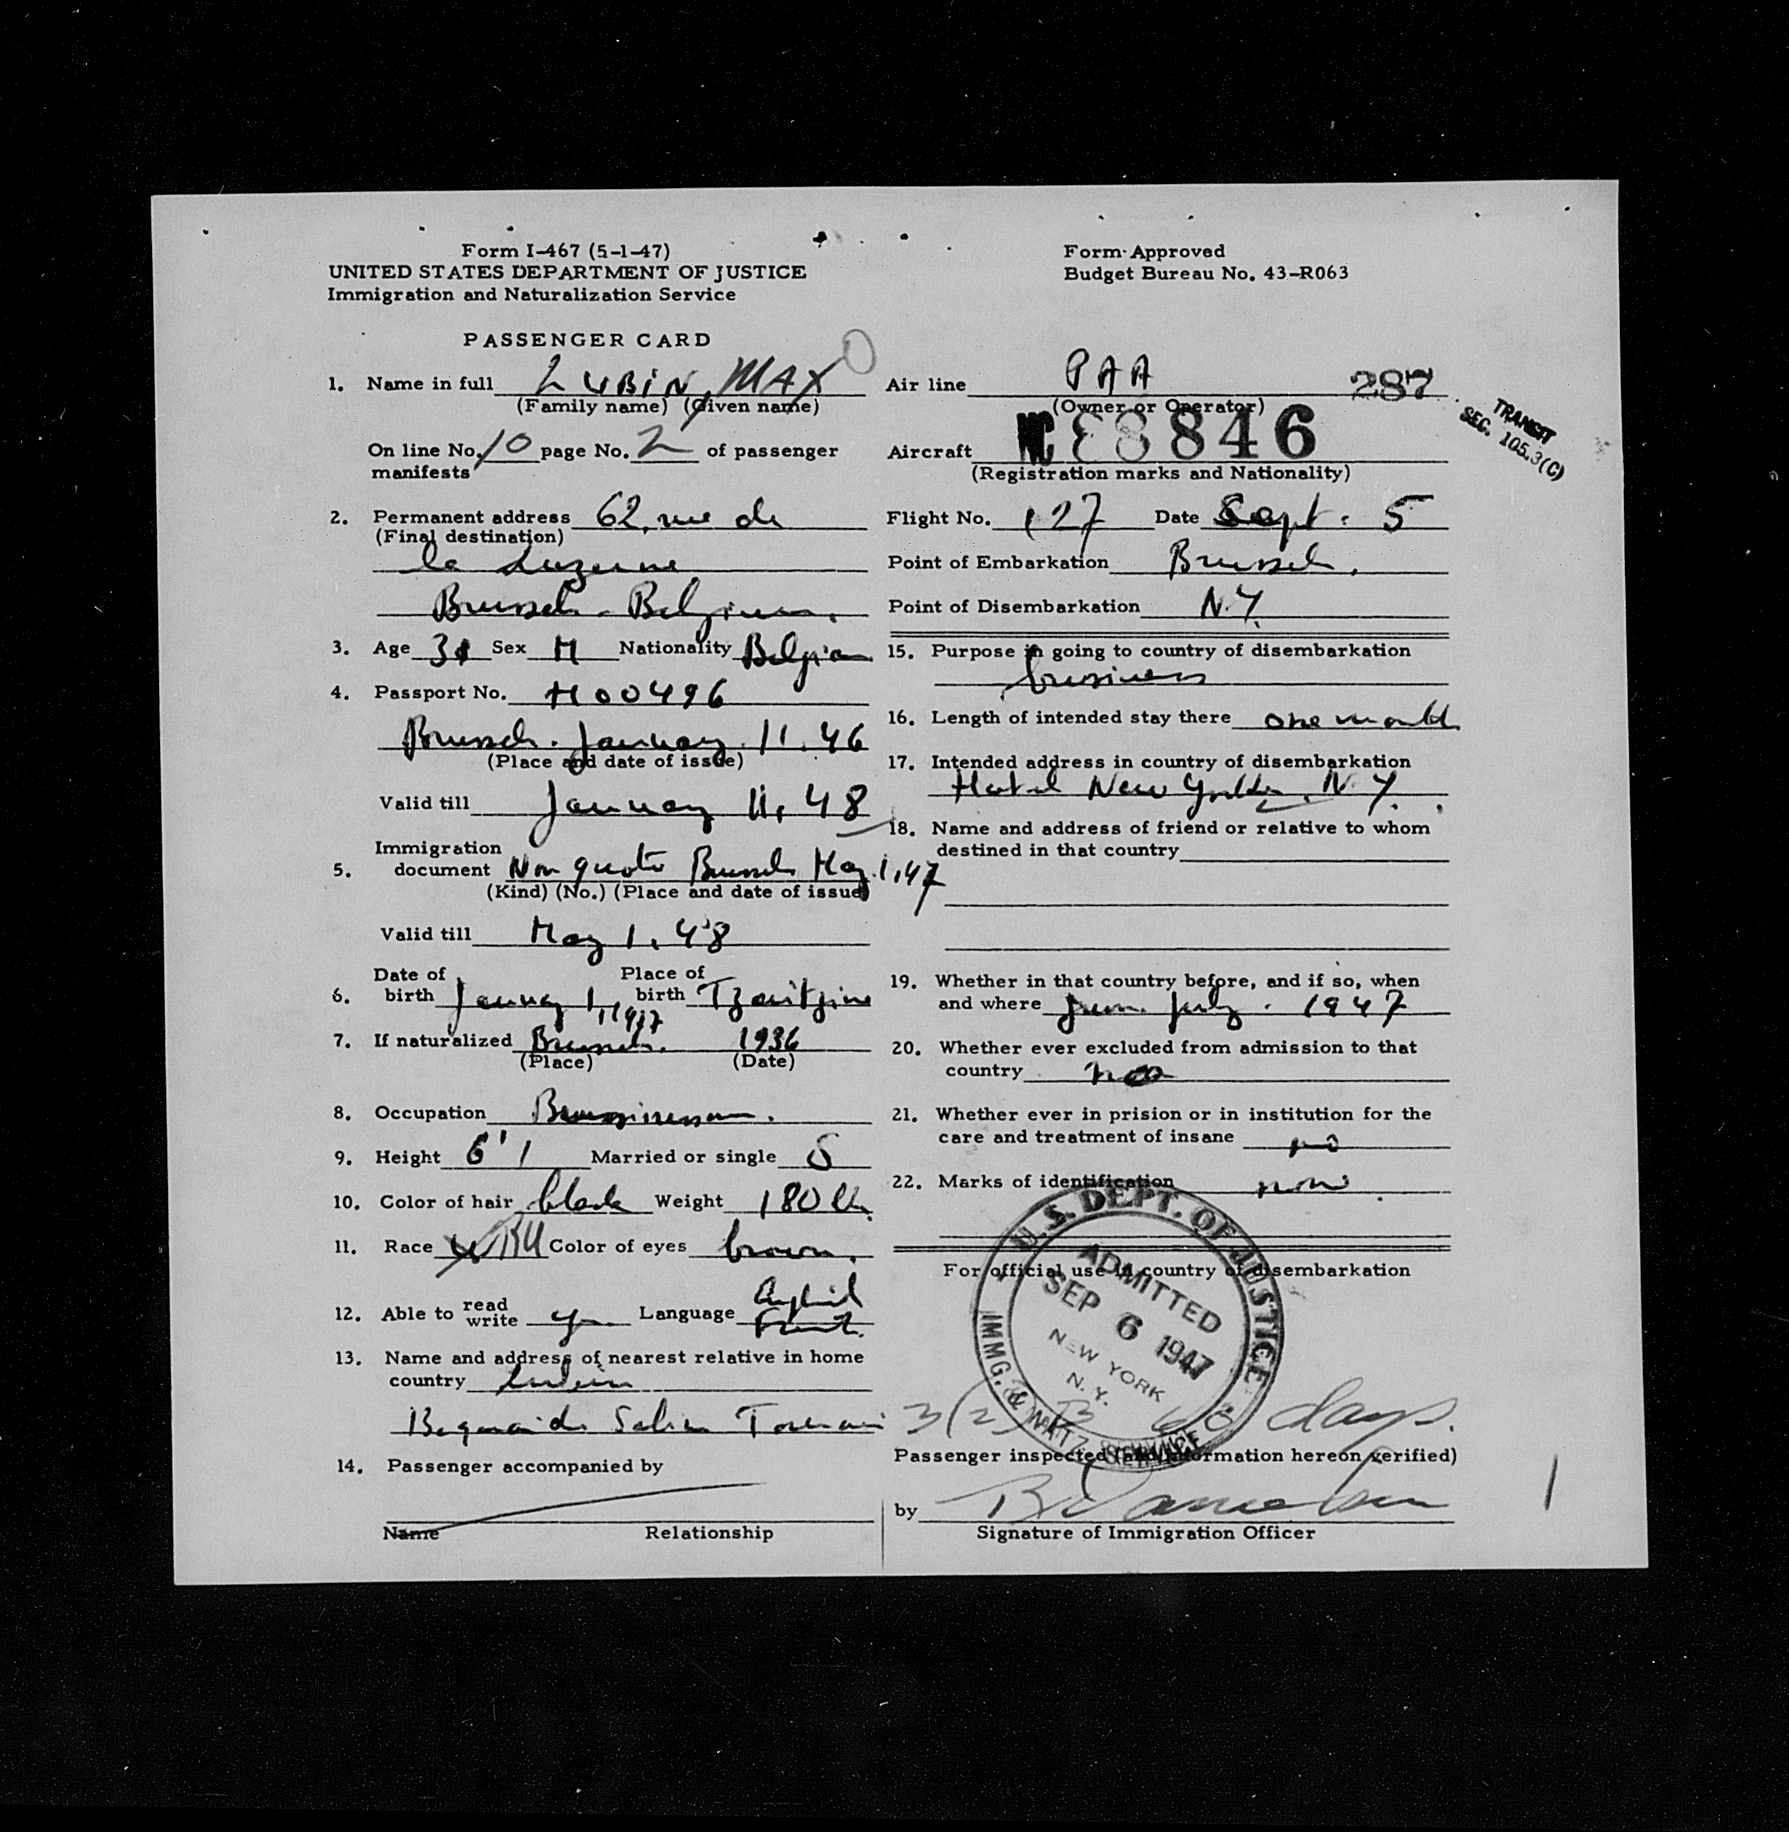 Form I-467 (5-1-47)
UNITED STATES DEPARTMENT OF JUSTICE
Immigration and Naturalization Service
Form Approved
Budget Bureau No. 43-R063
PASSENGER CARD
1. Name in full LUBIN, MAX
(Family name) (Given name)
On line No. 10 page No. 2 of passenger
manifests
2. Permanent address 62, rue de
(Final destination)
la Luzerne
Brussels - Belgium.
3. Age 30 Sex M Nationality Belgian
4. Passport No. H00496
Brussels. January. 11. 46
(Place and date of issue)
Valid till January 11, 48
Immigration
5. document Non quota Brussels May 1, 47
(Kind) (No.) (Place and date of issue)
Valid till May 1. 48
Date of Place of
6. birth January 1, 1917 birth
7. If naturalized Brussels. 1936
(Place) (Date)
8. Occupation
9. Height 6'1 Married or single S
10. Color of hair black Weight 180 lb.
11. Race Color of eyes brown.
12. Able to read write yes Language English
French.
13. Name and address of nearest relative in home
country Lubin
14. Passenger accompanied by
Name Relationship
Air line PAA 287
(Owner or Operator)
TRANSIT
SEC. 105.3(C)
Aircraft NC 88846
(Registration marks and Nationality)
Flight No. 127 Date Sept. 5
Point of Embarkation Brussels.
Point of Disembarkation N.Y.
15. Purpose in going to country of disembarkation
business
16. Length of intended stay there one month
17. Intended address in country of disembarkation
Hotel New Yorker. N.Y.
18. Name and address of friend or relative to whom
destined in that country
19. Whether in that country before, and if so, when
and where June. July. 1947
20. Whether ever excluded from admission to that
country no
21. Whether ever in prision or in institution for the
care and treatment of insane no
22. Marks of identification none
For official use in country of disembarkation
U.S. DEPT. OF JUSTICE
ADMITTED
SEP 6 1947
NEW YORK
N.Y.
IMMG. & NATZ. SERVICE
3(2) B 60 days.
Passenger inspected (and information hereon verified)
by
Signature of Immigration Officer